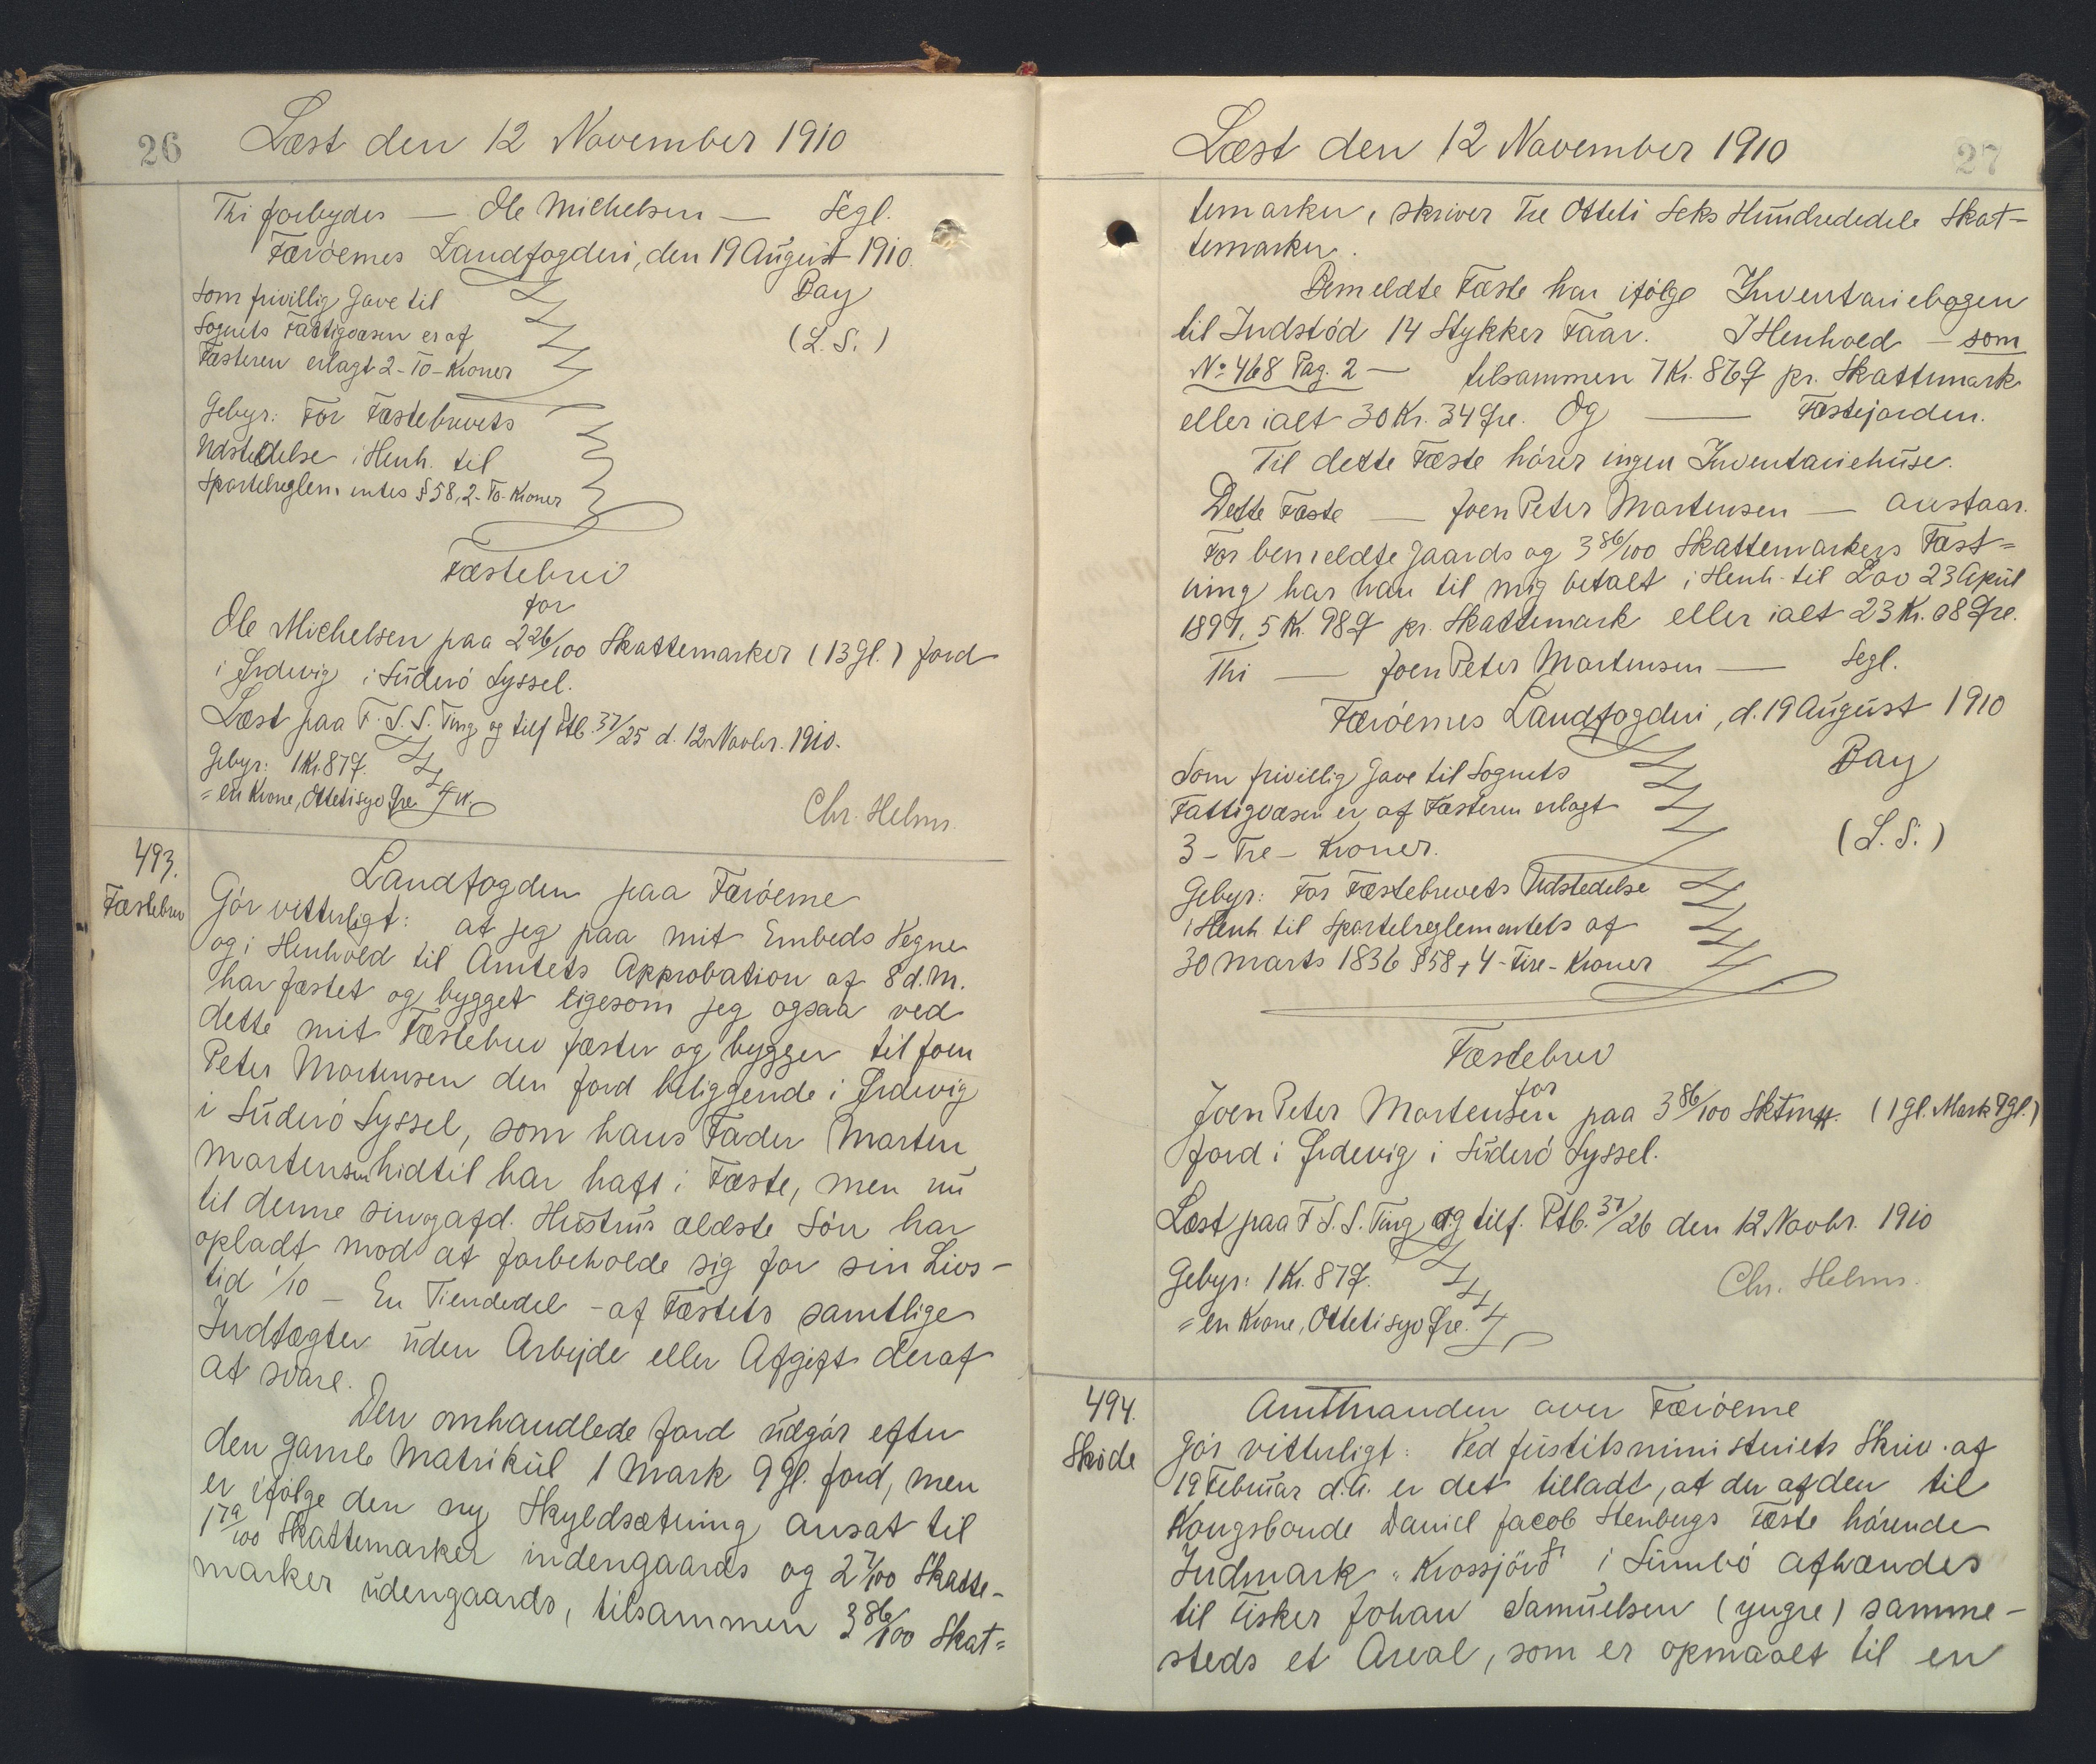 26
Læst den 12 November 1910
Thi forbydes — Ole Michelsen — Segl.
Færöernes Landfogderi, den 19 August 1910.
Som frivillig Gave til
Bay
Sognets Fattigvæsen er af
(L. S.)
Fæsteren erlagt 2 - To - Kroner
Gebyr: For Fæstebrevets
Udstedelse i Henh. til
Sportelreglementes § 58, 2 - To - Kroner
Fæstebrev
for
Ole Michelsen paa 2 26/100 Skattemarker (13 Gl.) Jord
i Ørdevig i Süderö Syssel.
Læst paa F. S. S. Ting og tilf Ptb. 37/25 d. 12 Novbr. 1910.
Gebyr: 1 Kr. 87 Ø.
= en Krone, Ottetisyv Øre
Chr. Helms.
493.
Fæstebrev
Landfogden paa Færöerne
Gör vitterligt: at jeg paa mit Embeds Vegne
og i Henhold til Amtets Approbation af 8 d. M.
har fæstet og bygget ligesom jeg ogsaa ved
dette mit Fæstebrev fæster og bygger til Joen
Peter Mortensen den Jord beliggende i Ørdevig
i Süderö Syssel, som hans Fader Morten
Mortensen hidtil har haft i Fæste, men nu
til denne sin og afd. Hustrus ældste Sön har
opladt mod at forbeholde sig for sin Livs-
tid 1/10 - En Tiendedel - af Fæstets samtlige
Indtægter uden Arbejde eller Afgift deraf
at svare.
Den omhandlede Jord udgör efter
den gamle Matrikül 1 Mark 9 Gl. Jord, men
er ifölge den ny Skyldsætning ansat til
1 79/100 Skattemarker indengaards og 2 7/100 Skatte-
marker udengaards, tilsammen 3 86/100 Skat=
27
Læst den 12 November 1910
temarker, skriver Tre Otteti Seks Hundrededele Skat-
temarker.
Bemeldte Fæste har ifölge Inventariebogen
til Indstöd 14 Stykker Faar. I Henhold — som
No 468 Pag. 2 — tilsammen 7 Kr. 86 Ø pr. Skattemark
eller ialt 30 Kr. 34 Øre. Og — Fæstejorden.
Til dette Fæste hörer ingen Inventariehuse.
Dette Fæste — Joen Peter Mortensen — anstaar.
For bemeldte Jaards og 3 86/100 Skattemarkers Fæst=
ning har han til mig betalt i Henh. til Lov 23 April
1897, 5 Kr. 98 Ø pr. Skattemark eller ialt 23 Kr. 08 Øre.
Thi — Joen Peter Mortensen — Segl.
Færöernes Landfogderi, d. 19 August 1910
Som frivillig Gave til Sognets
Bay
Fattigvæsen er af Fæsteren erlagt
(L. S.)
3 - Tre - Kroner.
Gebyr: For Fæstebrevets Udstedelse
i Henh til Sportelreglementets af
30 Marts 1836 § 58, 4 - Fire - Kroner
Fæstebrev
for
Joen Peter Mortensen paa 3 86/100 Sktmk. (1 Gl. Mark 9 Gl.)
Jord i Ørdevig i Süderö Syssel.
Læst paa F S. S. Ting og tilf. Ptb. 37/26 den 12 Novbr. 1910
Gebyr: 1 Kr. 87 Ø.
Chr. Helms.
= en Krone, Ottetisyv Øre.
494.
Sköde
Amtmanden over Færöerne
Gör vitterligt: Ved Justitsministeriets Skriv. af
19 Februar d. A. er det tilladt, at der af den til
Kongsbonde Daniel Jacob Stenbergs Fæste hörende
Indmark "Krossjörð" i Sumbö afhændes
til Fisker Johan Samuelsen (yngre) samme-
steds et Areal, som er opmaalt til en